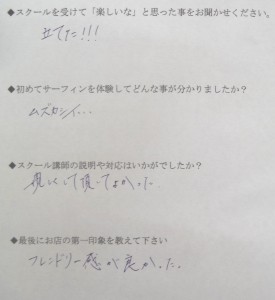 ◆スクールを受けて「楽しいな」と思った事をお聞かせください。
立てた!!!
◆初めてサーフィンを体験してどんな事が分かりましたか?
ムズカシイ…
◆スクール講師の説明や対応はいかがでしたか?
優しくして頂いてよかった
◆最後にお店の第一印象を教えて下さい
フレンドリー感が良かった。